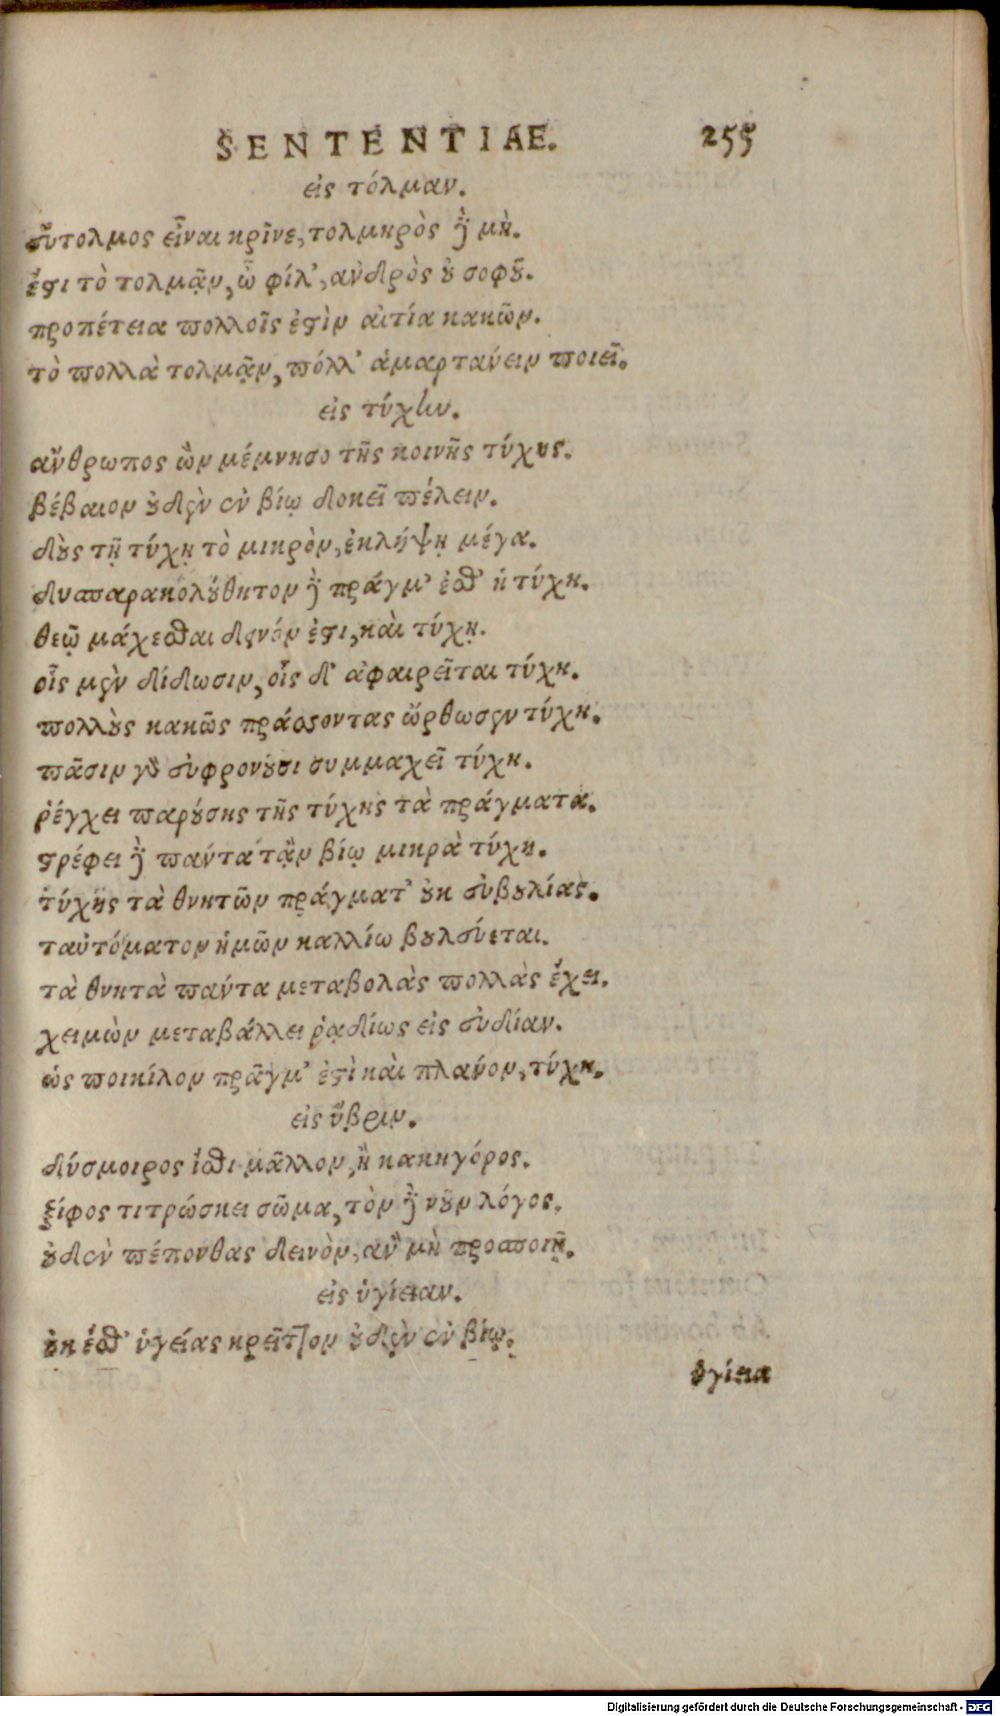 SENTENTIAE. 255
εἰς τόλμαν.
εὔτολμος εἶναι κρῖνε, τολμηρὸς δὲ μὴ.
ἔστι τὸ τολμᾷν, ὦ φίλ', ἀνδρὸς οὐ σοφοῦ.
προπέτεια πολλοῖς ἐστὶν αἰτία κακῶν.
τὸ πολλὰ τολμᾷν, πόλλ' ἁμαρτάνειν ποιεῖ.
εἰς τύχην.
ἄνθρωπος ὢν μέμνησο τῆς κοινῆς τύχης.
βέβαιον οὐδὲν ἐν βίῳ δοκεῖ πέλειν.
δοὺς τῇ τύχῃ τὸ μικρὸν, ἐκλήψῃ μέγα.
δυσπαρακολούθητον δὲ πράγμ' ἐσθ' ἡ τύχη.
θεῷ μάχεσθαι δεινόν ἐστι, καὶ τύχῃ.
οἷς μὲν δίδωσιν, οἷς δ' ἀφαιρεῖται τύχη.
πολλοὺς κακῶς πράσσοντας ὤρθωσεν τύχη.
πᾶσιν γὰρ εὐφρονοῦσι συμμαχεῖ τύχη.
ῥέγχει παρούσης τῆς τύχης τὰ πράγματα.
στρέφει δὲ πάντα τἀν βίῳ μικρὰ τύχη.
τύχης τὰ θνητῶν πράγματ' οὐκ εὐβουλίας.
ταὐτόματον ἡμῶν καλλίω βουλεύεται.
τὰ θνητὰ πάντα μεταβολὰς πολλὰς ἔχει.
χειμὼν μεταβάλλει ῥᾳδίως εἰς εὐδίαν.
ὡς ποικίλον πρᾶγμ' ἐστὶ καὶ πλάνον, τύχη.
εἰς ὕβριν.
δύσμοιρος ἴσθι μᾶλλον, ἢ κακηγόρος.
ξίφος τιτρώσκει σῶμα, τὸν δὲ νοῦν λόγος.
οὐδὲν πέπονθας δεινὸν, ἂν μὴ προσποιῇ.
εἰς ὑγίειαν.
οὐκ ἔσθ' ὑγείας κρεῖττον οὐδὲν ἐν βίῳ.
ὑγίεια
Digitalisierung gefördert durch die Deutsche Forschungsgemeinschaft - DFG